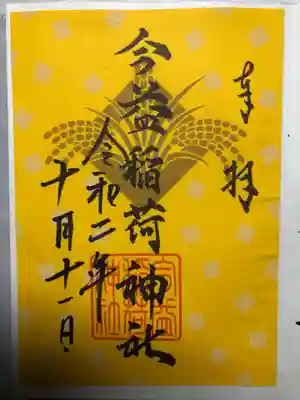 奉拝
益稲荷神社
令和二年
十月十一日